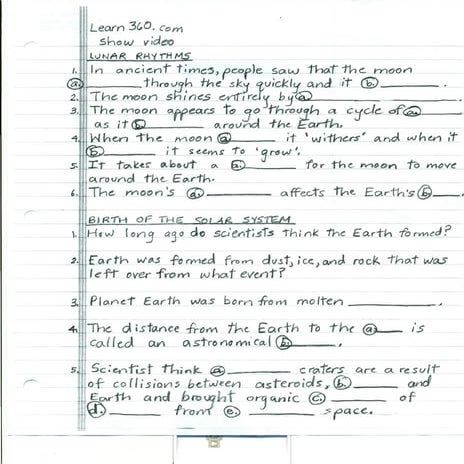 Learn 360.com
Show video
LUNAR RHYTHMS
1. In ancient times, people saw that the moon
a. ______ through the sky quickly and it b. ______
2. The moon shines entirely by a ______
3. The moon appears to go through a cycle of a ______
as it b ______ around the Earth.
4. When the moon a ______ it 'withers' and when it
b. ______ it seems to 'grow'.
5. It takes about a a. ______ for the moon to move
around the Earth.
6. The moon's a. ______ affects the Earth's b ______.
BIRTH OF THE SOLAR SYSTEM
1. How long ago do scientists think the Earth formed?
2. Earth was formed from dust, ice, and rock that was
left over from what event?
3. Planet Earth was born from molten ______.
4. The distance from the Earth to the a ______ is
called an astronomical b ______.
5. Scientist think a ______ craters are a result
of collisions between asteroids, b. ______ and
Earth and brought organic c. ______ of
d. ______ from e. ______ space.